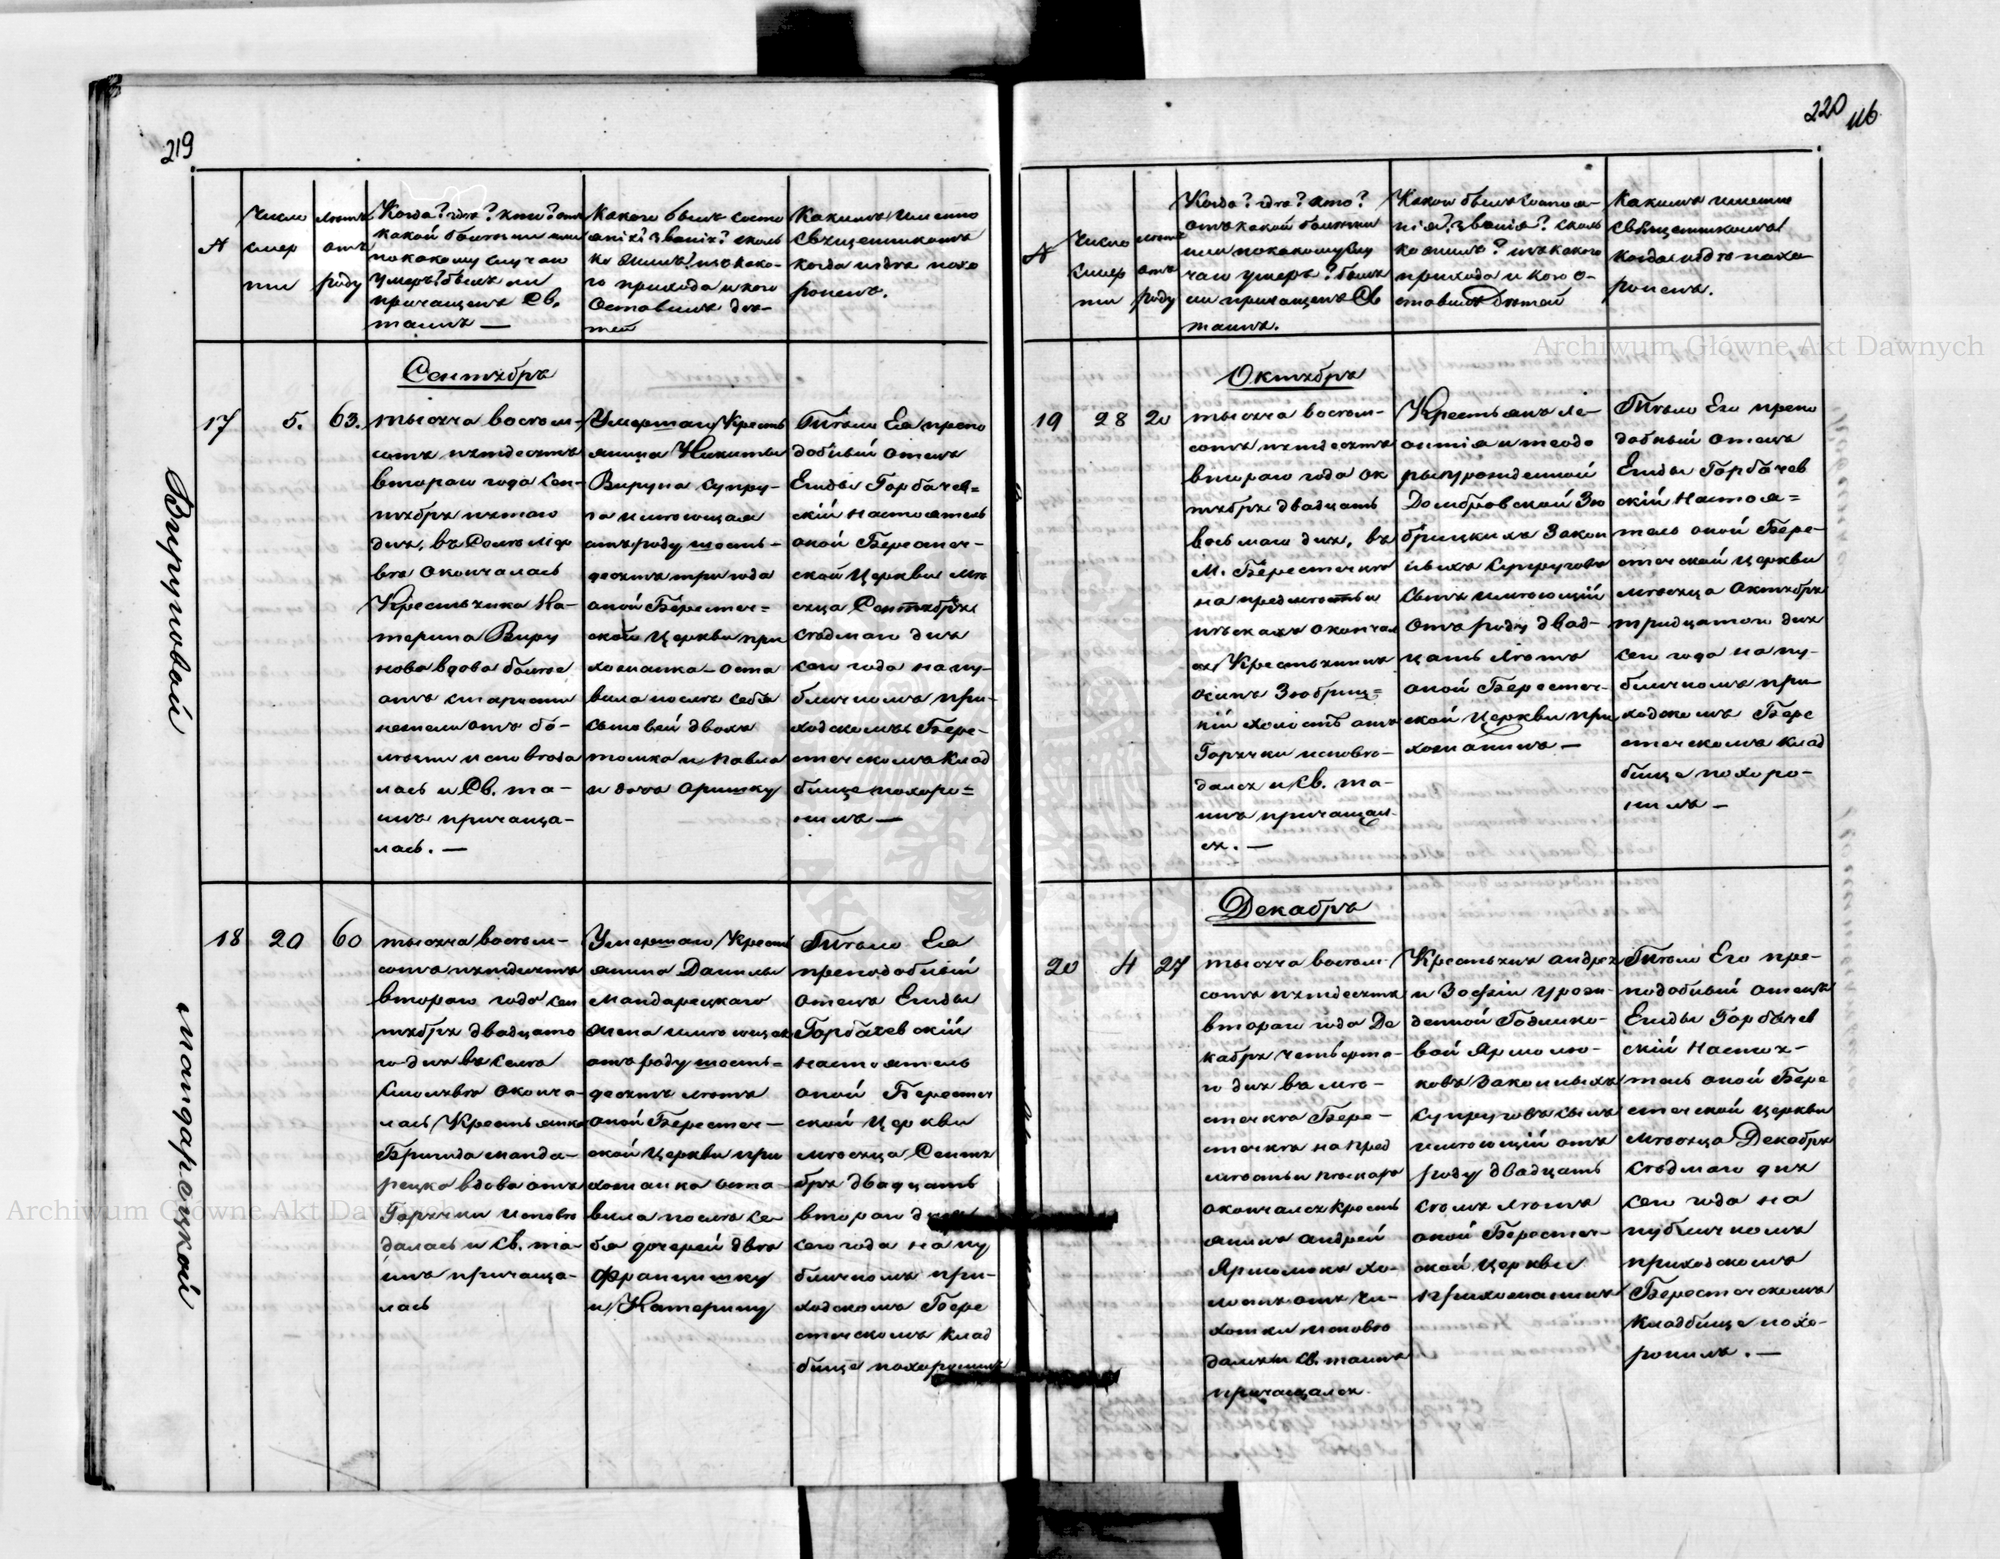 219
№
Число
смер
ти
лѣтъ
отъ
роду
Когда? гдѣ? кто? отъ
какой болѣзни или
по какому случаю
умеръ? былъ ли
причащенъ Св.
таинъ —
Какого былъ состо
янія? званія? сколь
ко жилъ? изъ како-
го прихода и кого
оставилъ дѣ-
тей
Какимъ именно
Священникомъ
когда и гдѣ похо
роненъ.
Сентябрь
17
5.
63.
тысяча восем-
сотъ пятдесятъ
втораго года Сен-
тября пятаго
дня, въ Селѣ
вѣ окончалась
Крестьянка Ка-
терина Виру
нова вдова болѣе
отъ старости
нежели отъ бо-
лѣзни исповѣда
лась и Св. та-
инъ причаща-
лась. —
Умершаго Кресть
янина Никиты
Вируна супру-
га имѣющая
отъ роду шесть-
десятъ три года
оной Берестеч-
ской Церкви при
хожанка — оста
вила послѣ себя
сыновей двохъ
томка и Павла
и дочь Оришку
Тѣло Ея препо
добный отецъ
Емиды Горбачев-
скій настоятель
оной Берестеч-
ской Церкви мѣ
сяца Сентября
седмаго дня
сего года на пу-
бличномъ при-
ходскомъ Бере-
стечскомъ клад
бище похоро-
нилъ —
Вируновой
18
20
60
тысяча восем-
сотъ пятдесятъ
втораго года сен
тября двадцато
го дня въ Селѣ
Смолявѣ оконча-
лась Крестьянка
Бригида манда-
рецка вдова отъ
Горячки исповѣ
далась и Св. та-
инъ причаща-
лась
Умершаго Кресть
янина Данилы
Мандарецкаго
жена имѣющая
отъ роду шесть-
десятъ лѣтъ
оной Берестеч-
ской Церкви при
хожанка оста-
вила послѣ се
бя дочерей двѣ
Францишку
и Катерину
Тѣло Ея
преподобный
отецъ Емиды
Горбачевскій
настоятель
оной Берестеч
ской Церкви
мѣсяца Сентя
бря двадцать
втораго дня
сего года на пу
бличномъ при-
ходскомъ Бере
стечскомъ клад
бище похоронилъ
мандарецкой
220
116
№
Число
смер
ти
лѣтъ
отъ
роду
Когда? гдѣ? кто?
отъ какой болѣзни
или по какому слу
чаю умеръ? былъ
ли причащенъ Св
таинъ.
Какого былъ состоя-
нія? званія? сколь
ко жилъ? изъ какого
прихода и кого о-
ставилъ Дѣтей
Какимъ именно
Священникомъ
когда и гдѣ похо
роненъ.
Октябрь
19
28
20
тысяча восем-
сотъ пятдесятъ
втораго года ок
тября двадцать
восьмаго дня, въ
М. Берестечкѣ
на предмѣстьи
пѣскахъ окончал
ся Крестьянинъ
осипъ Зѣобриц-
кій холостъ отъ
Горячки исповѣ-
дался и Св. та-
инъ причащал-
ся. —
Крестьянъ Ле-
онтія и теодо
ры урожденной
Домбровской Зѣо
брицкихъ Закон
ныхъ супруговъ
сынъ имѣющій
отъ роду двад-
цать лѣтъ
оной Берестеч-
ской Церкви при
хожанинъ —
Тѣло Его препо
добный отецъ
Емиды Горбачев
скій Настоя-
тель оной Бере-
стечской Церкви
мѣсяца Октября
тридцатого дня
сего года на пу-
бличномъ при-
ходскомъ Бере
стечскомъ клад
бище похоро-
нилъ —
Декабрь
20
4
27
тысяча восем-
сотъ пятдесятъ
втораго года Де
кабря четверта-
го дня въ мѣ-
стечкѣ Бере-
стечкѣ на пред
мѣстьи пѣскахъ
окончался кресть
янинъ андрей
Ярмолюкъ хо-
лостъ отъ чи-
хотки исповѣ
дался и Св. таинъ
причащался
Крестьянъ андрея
и Зофіи урож-
денной Годлико-
вой Ярмолю-
ковъ Законныхъ
супруговъ сынъ
имѣющій отъ
роду двадцать
семъ лѣтъ
оной Берестеч-
ской Церкви
прихожанинъ
Тѣло Его пре-
подобный отецъ
Емиды Горбачев
скій Настоя-
тель оной Бере
стечской Церкви
мѣсяца Декабря
седмаго дня
сего года на
публичномъ
приходскомъ
Берестечскомъ
кладбище похо-
ронилъ. —
Archiwum Główne Akt Dawnych
Archiwum Główne Akt Dawnych